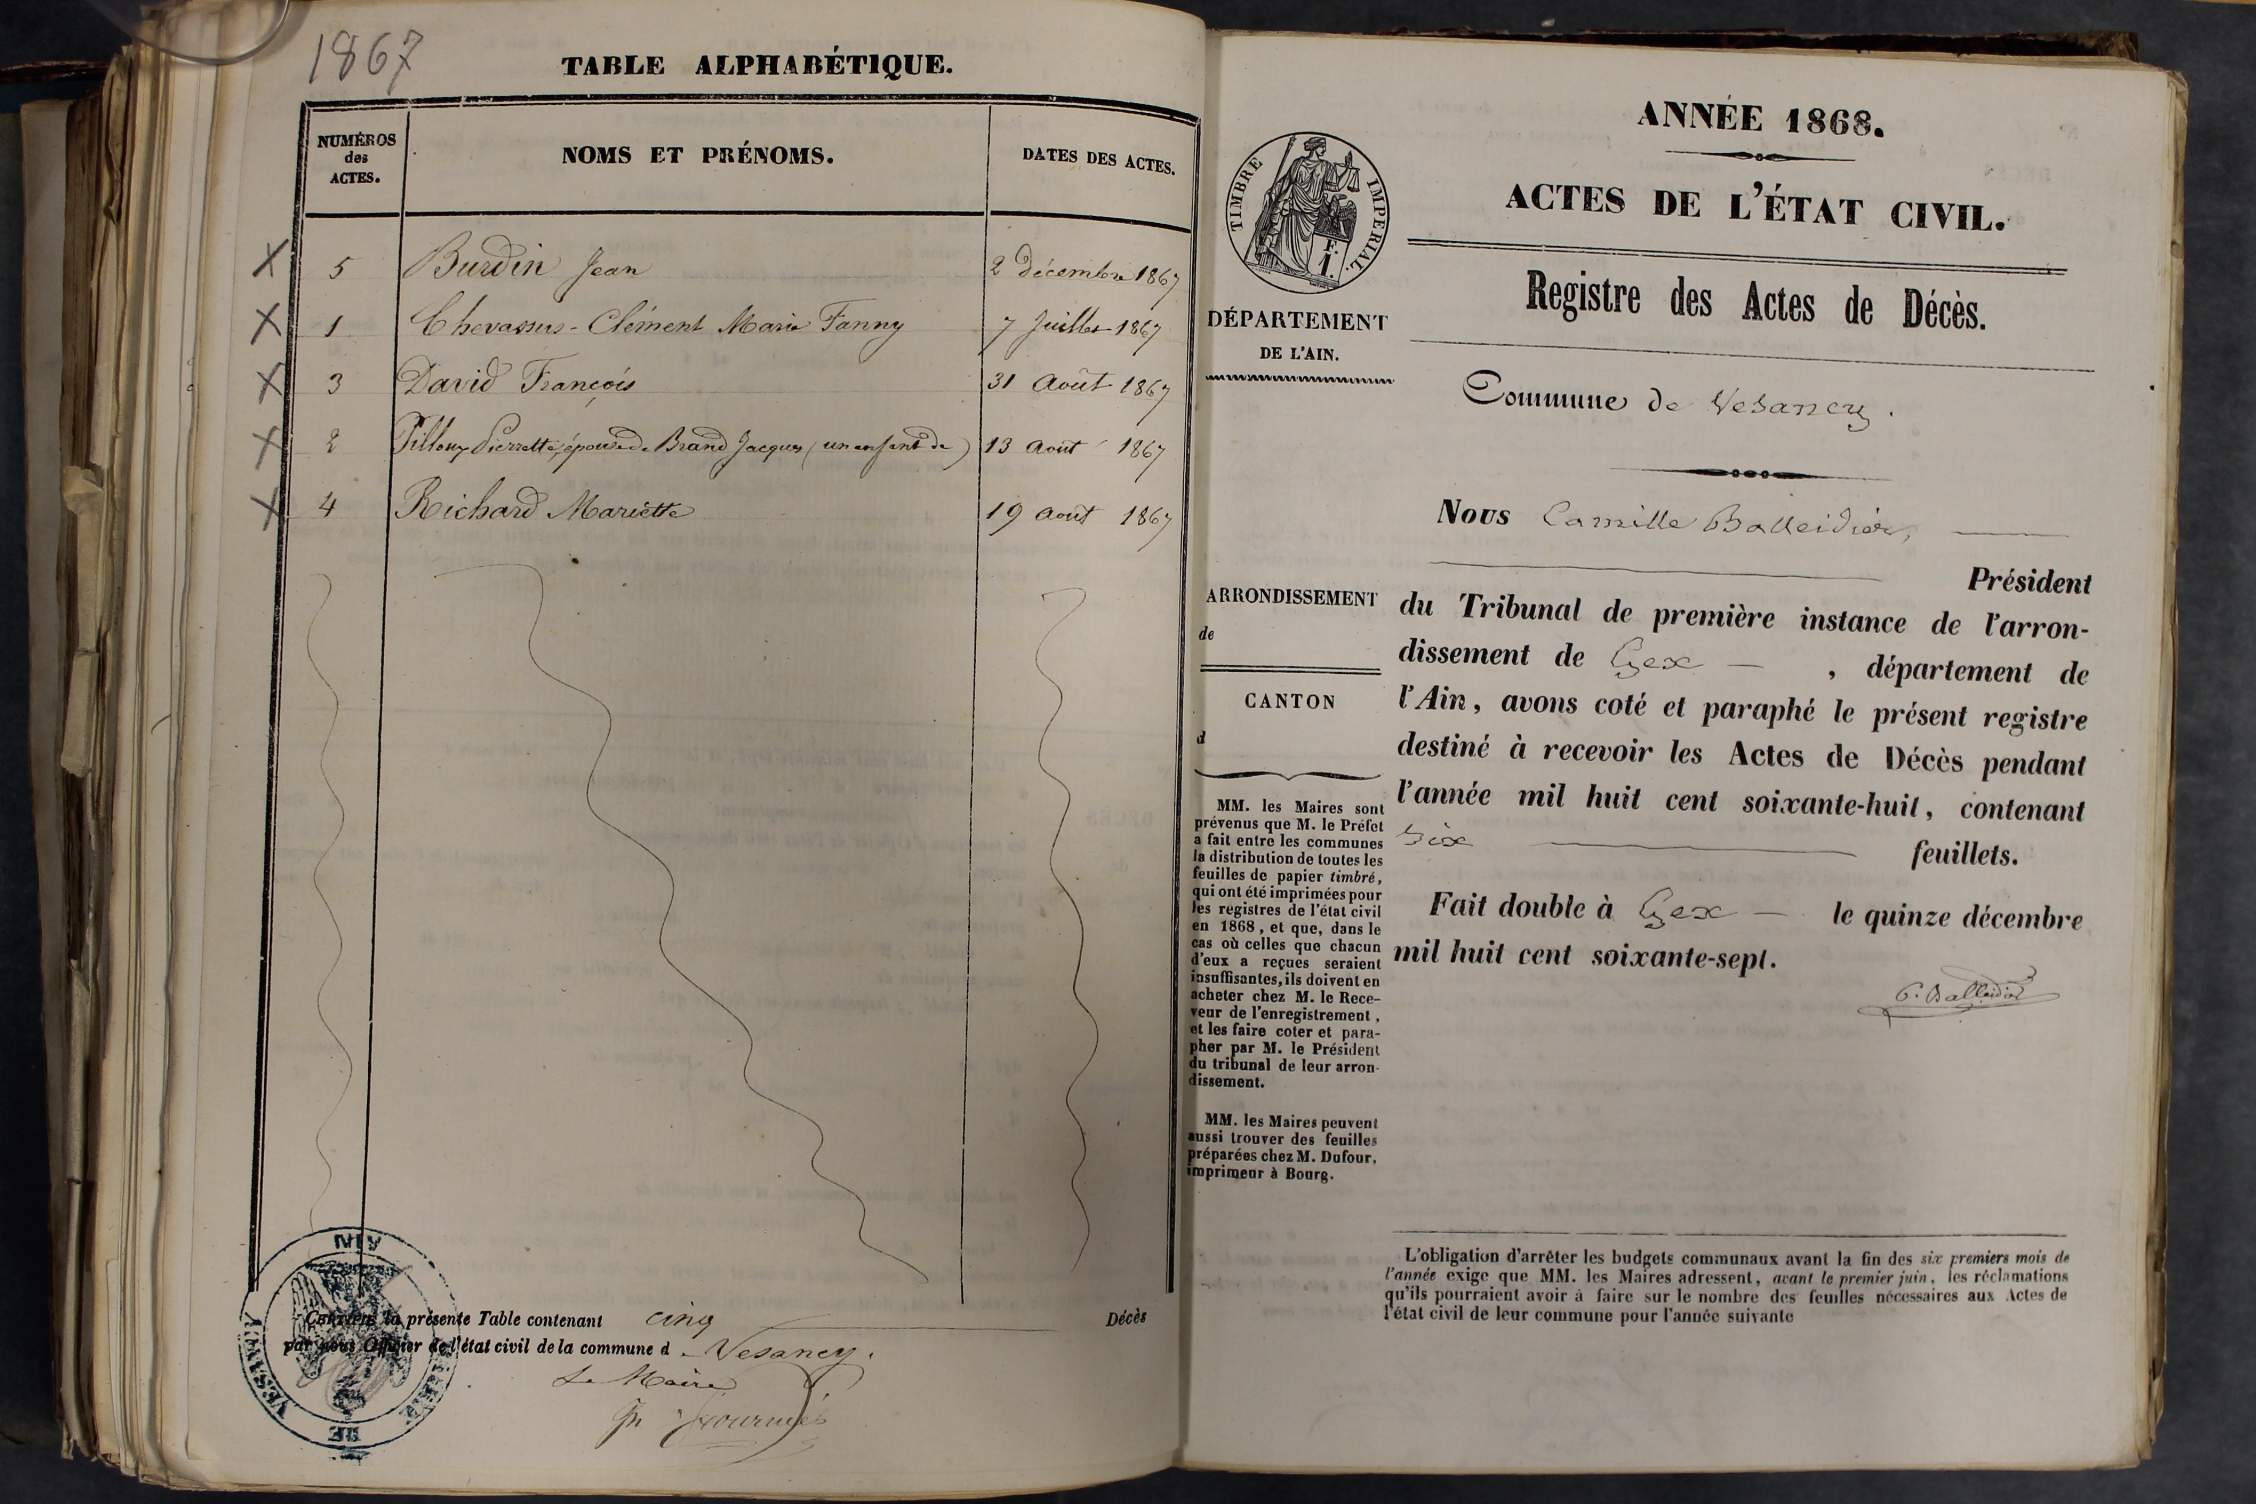 1867
TABLE ALPHABÉTIQUE.
NUMÉROS
des
ACTES.
NOMS ET PRÉNOMS.
DATES DES ACTES.
X 5 Burdin Jean 2 décembre 1867
X 1 Chevassus-Clément Marie Fanny 7 Juillet 1867
X 3 David François 31 Août 1867
X 2 Pierrette, épouse de Brand Jacques (un enfant de) 13 août 1867
X 4 Richard Mariette 19 août 1867
CERTIFIÉ la présente Table contenant cinq Décès
par nous Officier de l'état civil de la commune d Vesancy.
Le Maire
MAIRIE DE VESANCY
AIN
ANNÉE 1868.
ACTES DE L'ÉTAT CIVIL.
Registre des Actes de Décès.
TIMBRE IMPERIAL.
F.
1.
DÉPARTEMENT
DE L'AIN.
Commune de Vesancy.
Nous Camille Balleidier,
Président
du Tribunal de première instance de l'arron-
dissement de Gex, département de
l'Ain, avons coté et paraphé le présent registre
destiné à recevoir les Actes de Décès pendant
l'année mil huit cent soixante-huit, contenant
six feuillets.
Fait double à Gex le quinze décembre
mil huit cent soixante-sept.
C. Balleidier
ARRONDISSEMENT
de
CANTON
d
MM. les Maires sont
prévenus que M. le Préfet
a fait entre les communes
la distribution de toutes les
feuilles de papier timbré,
qui ont été imprimées pour
les registres de l'état civil
en 1868, et que, dans le
cas où celles que chacun
d'eux a reçues seraient
insuffisantes, ils doivent en
acheter chez M. le Rece-
veur de l'enregistrement,
et les faire coter et para-
pher par M. le Président
du tribunal de leur arron-
dissement.
MM. les Maires peuvent
aussi trouver des feuilles
préparées chez M. Dufour,
imprimeur à Bourg.
L'obligation d'arrêter les budgets communaux avant la fin des six premiers mois de
l'année exige que MM. les Maires adressent, avant le premier juin, les réclamations
qu'ils pourraient avoir à faire sur le nombre des feuilles nécessaires aux Actes de
l'état civil de leur commune pour l'année suivante